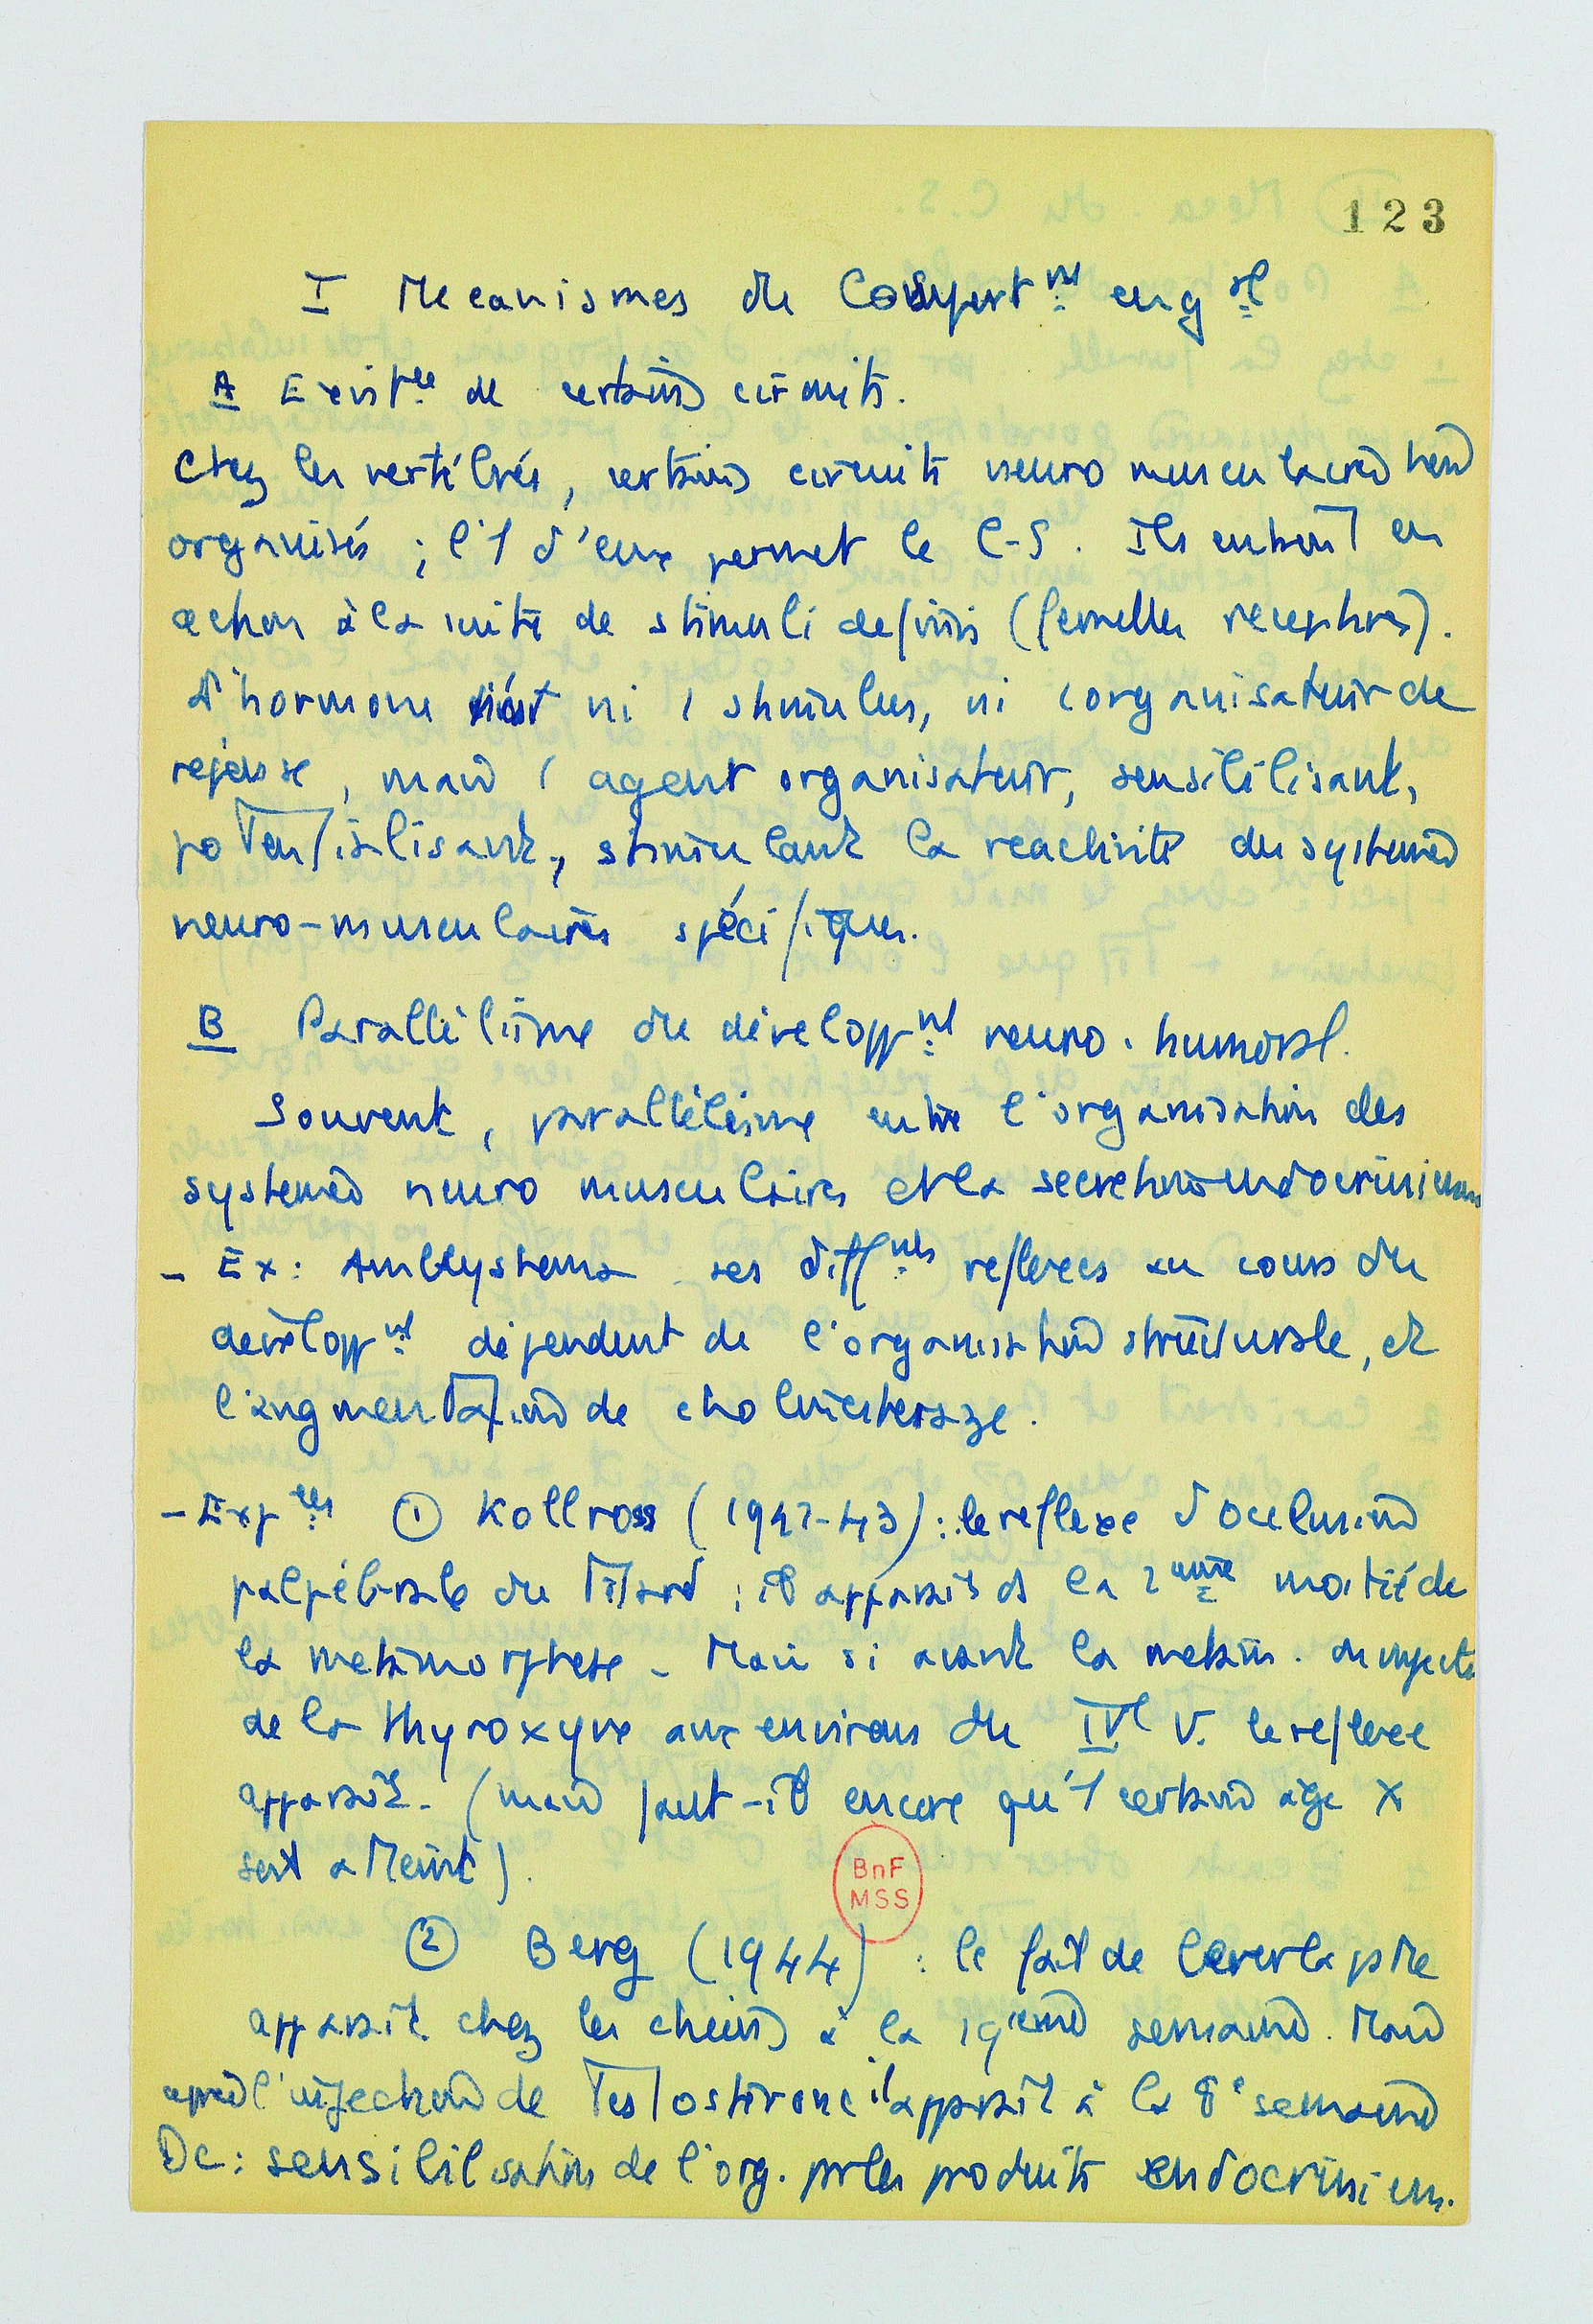 123
I Mecanismes du Comport^nt en g^al
A Exist^ce de certains circuits.
Chez les vertébrés, certains circuits neuro musculaires sont
organisés ; l'1 d'eux permet le C-S. Ils entrent en
action à la suite de stimuli definis (femelles receptives).
L'hormone n'est ni 1 stimulus, ni 1 organisateur de
reponse, mais 1 agent organisateur, sensibilisant,
potentialisant, stimulant la reactivité des systemes
neuro-musculaires spécifiques.
B Parallélisme du développ^nt neuro-humoral.
Souvent, parallélisme entre l'organisation des
systemes neuro musculaires et la secretion endocrinienne
- Ex: Amblystema ses diff^nts reflexes au cours du
développ^nt dépendent de l'organisation structurale, et
l'augmentation de cholinesterase.
- Exp^ces ① Kollross (1942-43) : le reflexe d'occlusion
palpébrale du Tétard ; il apparait ds la 2^eme moitié de
la metamorphose - Mais si avant la metam. on injecte
de la thyroxyne aux environs du IV^e V. le reflexe
apparait. (mais faut-il encore qu'1 certain âge X
soit atteint).
BnF
MSS
② Berg (1944) : le fait de lever la patte
apparait chez les chiens à la 19^eme semaine. Mais
après l'injection de Testosterone il apparait à la 8^e semaine
Dc : sensibilisation de l'org. par les produits endocriniens.